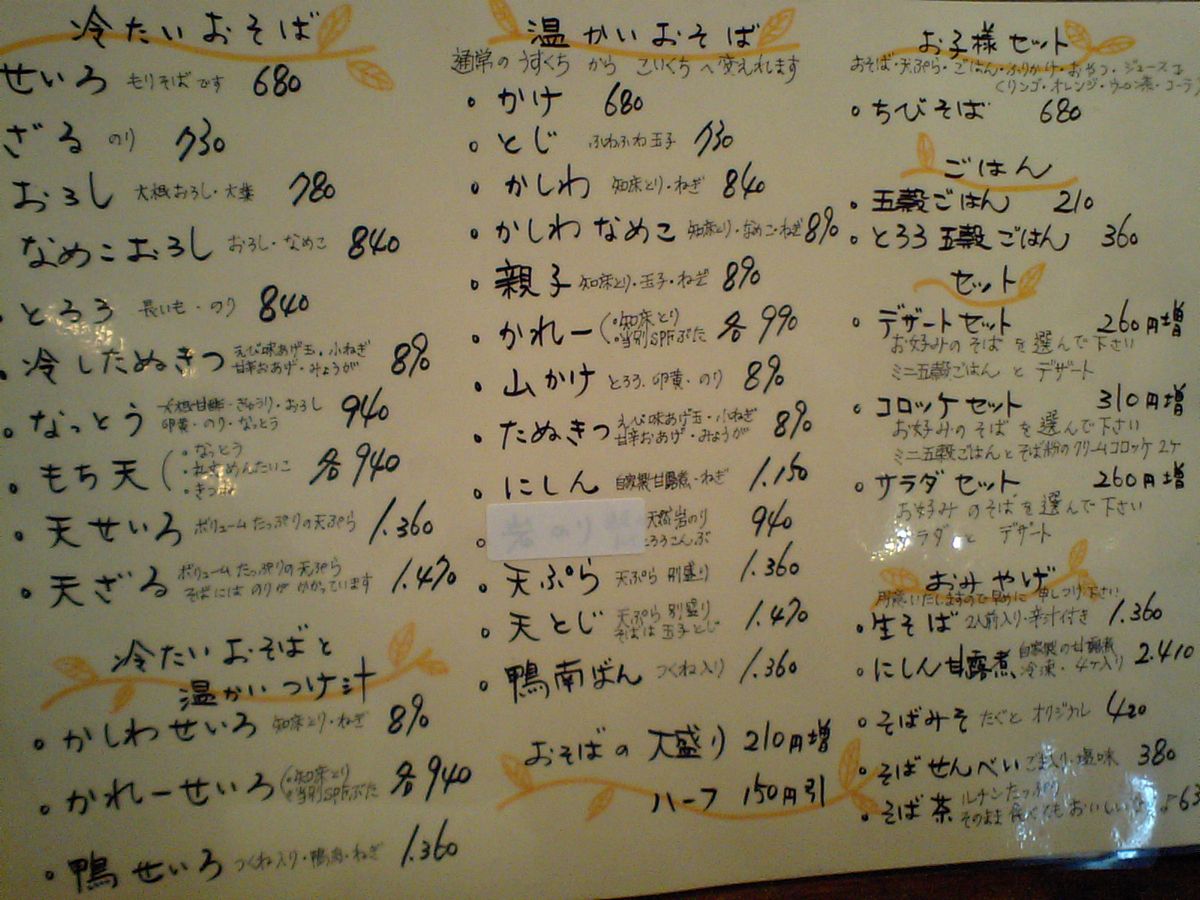 冷たいおそば
せいろ もりそばです 680
ざる のり 730
おろし 大根おろし・大葉 780
なめこおろし おろし・なめこ 840
・とろろ 長いも・のり 840
・冷したぬきつ えび味あげ玉・小ねぎ 890
甘辛おあげ・みょうが
・なっとう きゅうり・おろし 940
卵黄・のり・なっとう
・もち天 (・なっとう 各940
・めんたいこ
・きつね
・天せいろ ボリュームたっぷりの天ぷら 1.360
・天ざる ボリュームたっぷりの天ぷら 1.470
そばにはのりがかかっています
冷たいおそばと
温かいつけ汁
・かしわせいろ 知床とり・ねぎ 890
・かれーせいろ (・知床とり 各940
・当別SPFぶた
・鴨せいろ つくね入り・鴨肉・ねぎ 1.360
温かいおそば
通常のうすくちからこいくちへ変えれます
・かけ 680
・とじ ふわふわ玉子 730
・かしわ 知床とり・ねぎ 840
・かしわなめこ 知床とり・なめこ・ねぎ 890
・親子 知床とり・玉子・ねぎ 890
・かれー (・知床とり 各990
・当別SPFぶた
・山かけ とろろ・卵黄・のり 890
・たぬきつ えび味あげ玉・小ねぎ 890
甘辛おあげ・みょうが
・にしん 自家製甘露煮・ねぎ 1.150
岩のり 天然岩のり 940
とろろこんぶ
・天ぷら 天ぷら別盛り 1.360
・天とじ 天ぷら別盛り 1.470
そばは玉子とじ
・鴨南ばん つくね入り 1.360
おそばの大盛り 210円増
ハーフ 150円引
お子様セット
おそば・天ぷら・ごはん・ふりかけ・おやつ・ジュース
(リンゴ・オレンジ・ウーロン茶・コーラ)
・ちびそば 680
ごはん
・五穀ごはん 210
・とろろ五穀ごはん 360
セット
・デザートセット 260円増
お好みのそばを選んで下さい
ミニ五穀ごはんとデザート
・コロッケセット 310円増
お好みのそばを選んで下さい
ミニ五穀ごはんとそば粉のクリームコロッケ2ケ
・サラダセット 260円増
お好みのそばを選んで下さい
サラダとデザート
おみやげ
用意いたしますので早めに申しつけ下さい
・生そば 2人前入り・辛汁付き 1.360
・にしん甘露煮 自家製の甘露煮 2.410
冷凍・4ケ入り
・そばみそ たぐとオリジナル 420
・そばせんべい ごま入り・塩味 380
・そば茶 ルチンたっぷり 63
そのまま食べてもおいしい